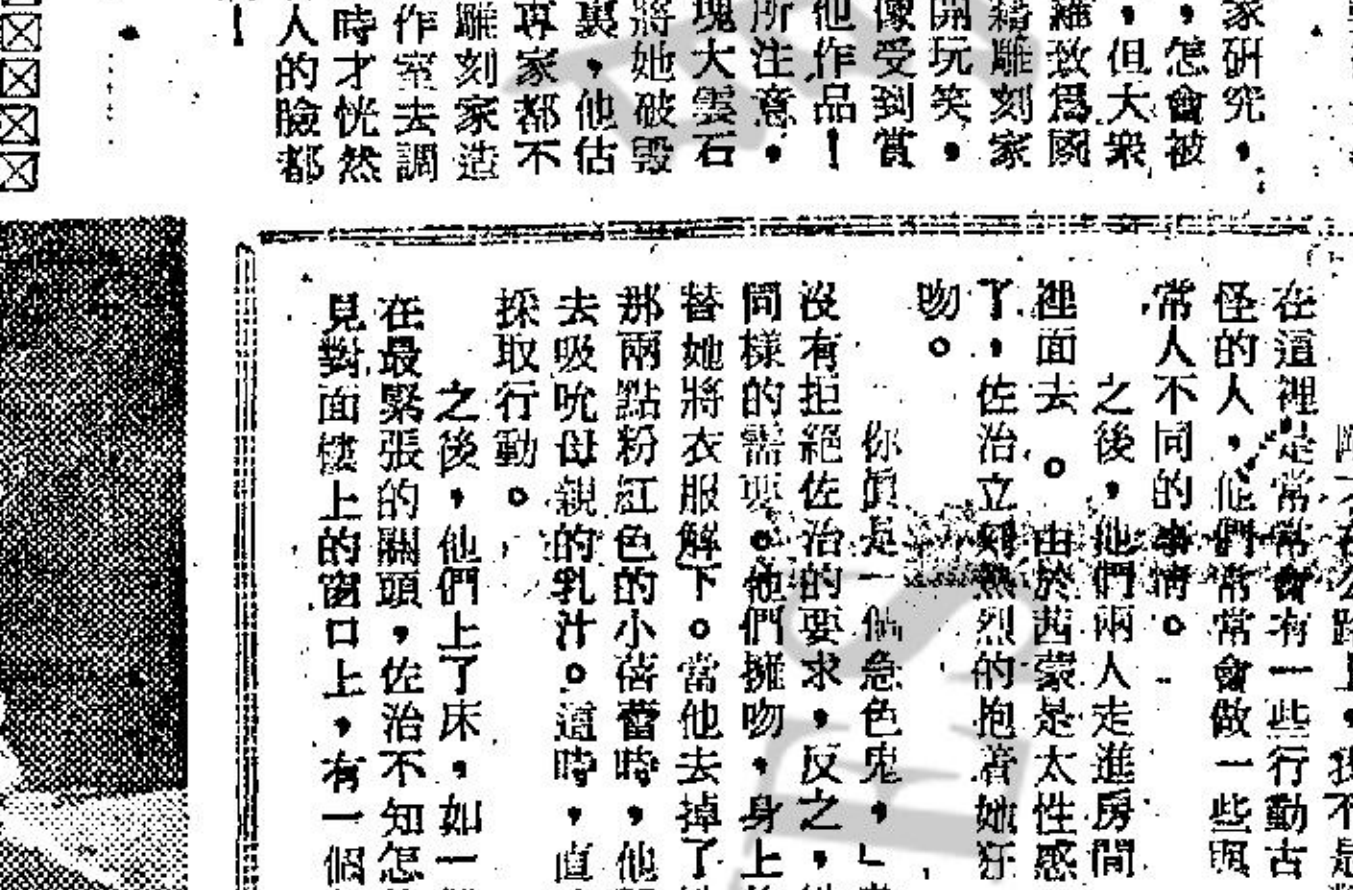 家研究，
，怎會被
，但大衆
羅致爲國
續雕刻家
開玩笑，
像受到賞
他作品！
所注意，
塊大雲石
將她破毀
裏，他估
再家都不
雕刻家造
作室去調
時才恍然
人的臉都
在這裡是常常會有一些行動古
怪的人，他們常常會做一些與
常人不同的事情。
之後，他們兩人走進房間
裡面去。由於茜蒙是太性感
了，佐治立刻熱烈的抱着她狂
吻。
你眞是一個急色鬼，」
沒有拒絕佐治的要求，反之，
同樣的需要。他們擁吻，身上
替她將衣服解下。當他去掉了
那兩點粉紅色的小蓓蕾時，他
去吸吮母親的乳汁。這時，直
採取行動。
之後，他們上了床，如一
在最緊張的關頭，佐治不知怎
見對面樓上的窗口上，有一個